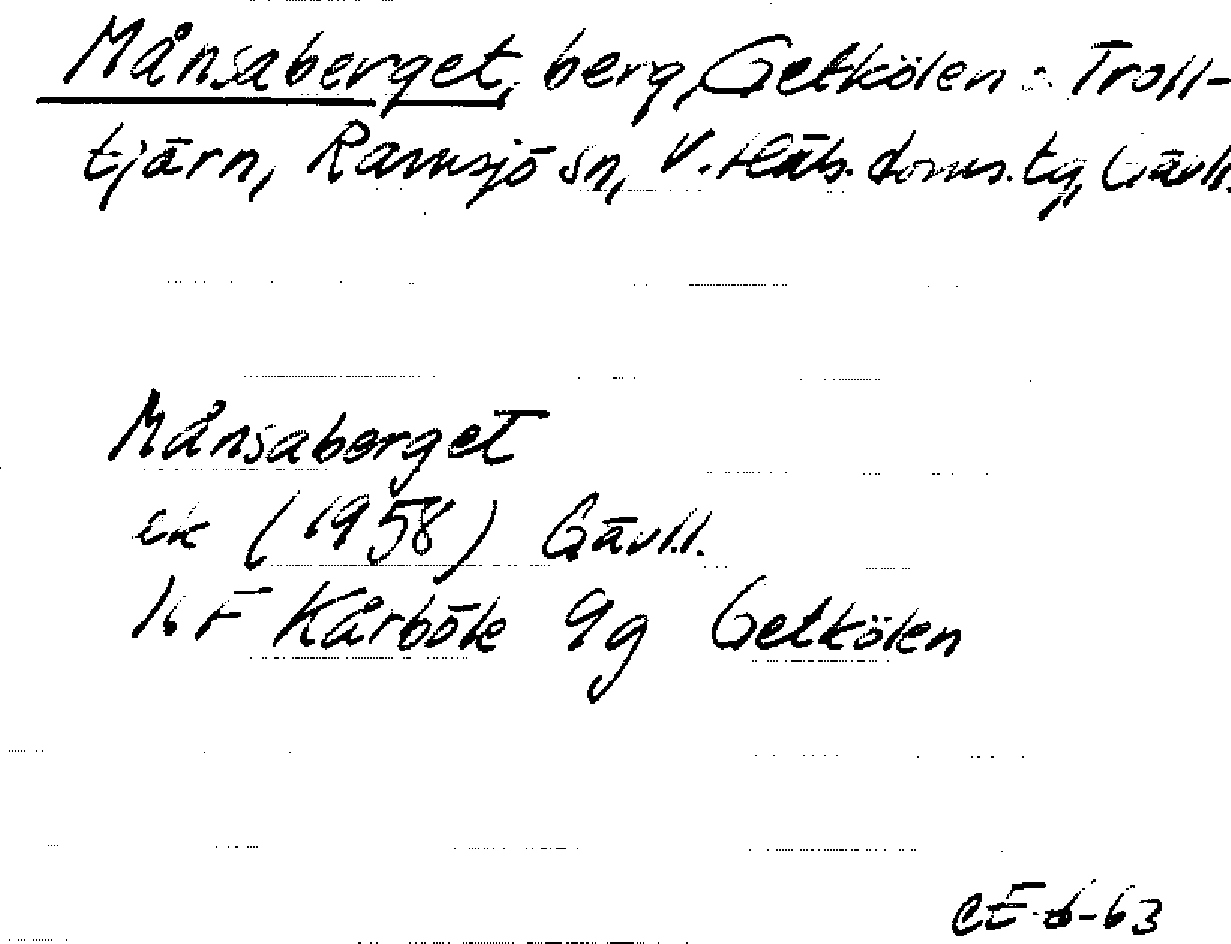 Månsaberget, berg, Getkölen : Troll-
tjärn, Ramsjö sn, V. Häls. doms. tg, Gävl.l.
Månsaberget
ek (1958) Gävl.l.
KF Kårböle 9g Getkölen
CE-6-63